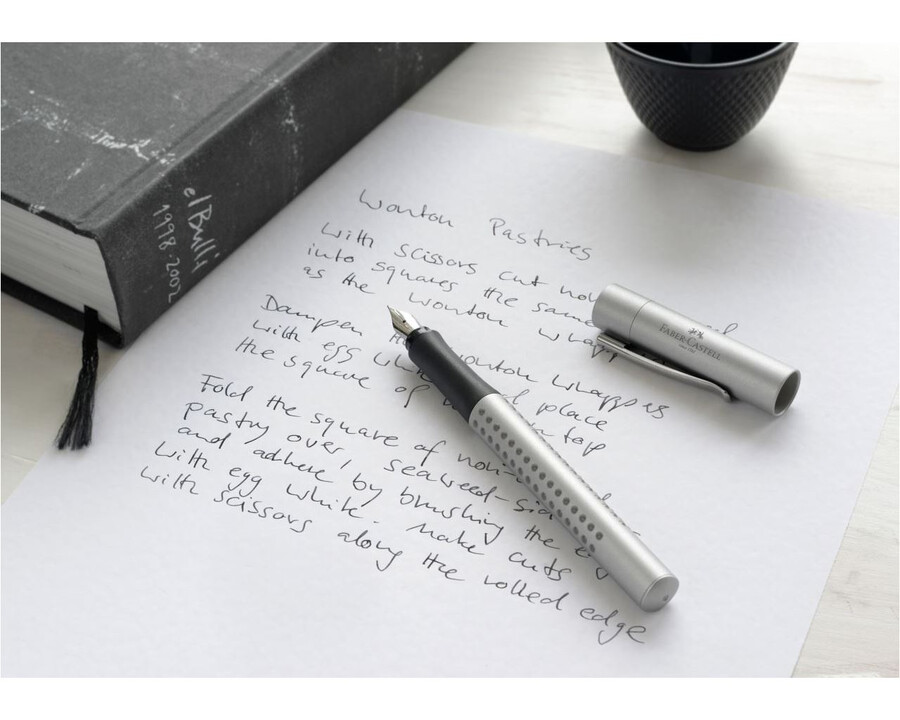 elBulli
1998-2002
Wonton Pastries
With scissors cut
into squares the same
as the wonton
Dampen wonton whappers
with egg place
the square of top
Fold the square of
pastry over,
and adhere by brushing the
with egg white. Make cuts
with scissors along the rolled edge
FABER-CASTELL